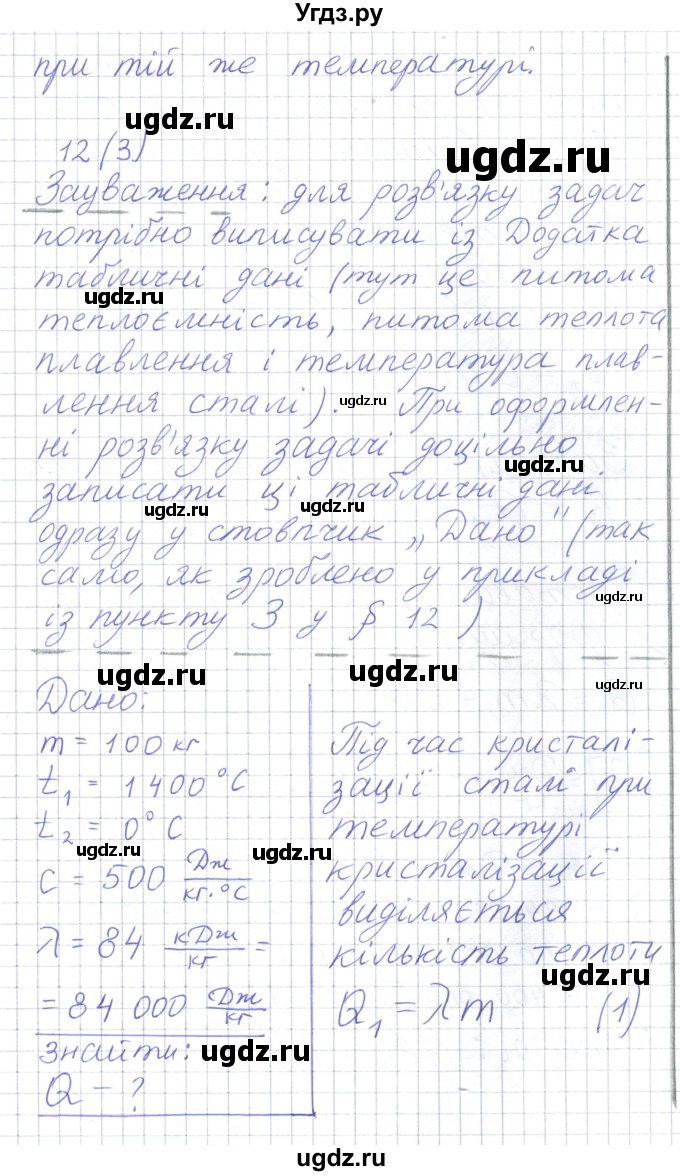 Угдз.ру
при тій же температурі.
ugdz.ru
12 (3)
ugdz.ru
Зауваження: для розв'язку задач
потрібно виписувати із Додатка
табличні дані (тут це питома
ugdz.ru
теплоємність, питома теплота
плавлення і температура плав-
лення сталі). При оформлен-
ugdz.ru
ні розв'язку задачі доцільно
ugdz.ru
записати ці табличні дані
ugdz.ru ugdz.ru
одразу у стовпчик „Дано" (так
само, як зроблено у прикладі
ugdz.ru
із пункту 3 у § 12 )
ugdz.ru ugdz.ru ugdz.ru
Дано:
m = 100 кг
t₁ = 1400 °C
t₂ = 0° C
ugdz.ru
c = 500 Дж/кг·°C
ugdz.ru
λ = 84 кДж/кг =
= 84 000 Дж/кг
знайти:
ugdz.ru
Q - ?
Під час кристалі-
зації сталі при
ugdz.ru
температурі
кристалізації
виділяється
кількість теплоти
ugdz.ru
Q₁ = λm (1)